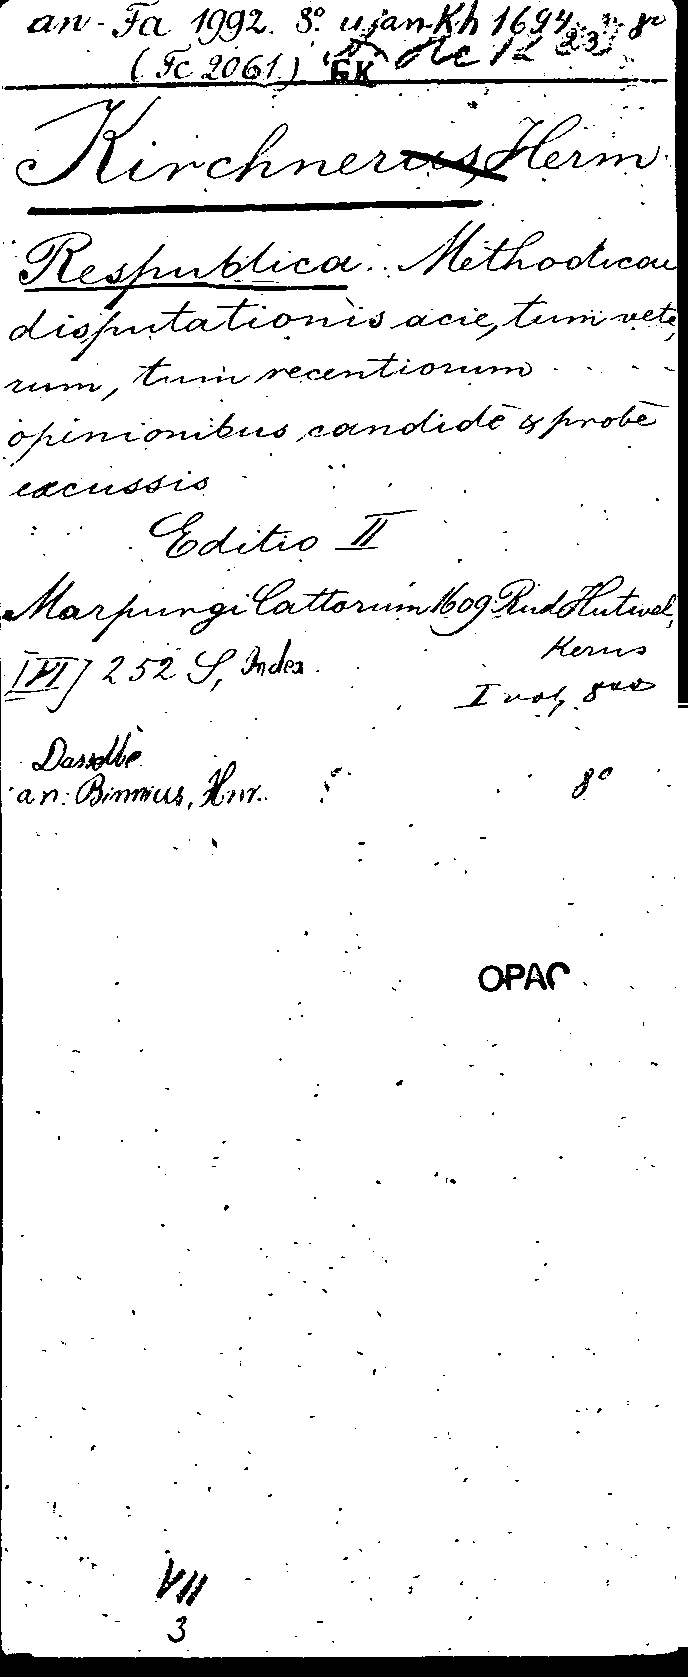 an - Fa 1992. 8º u. an Kh 1694 8º
(Fc 2061) GK Hc 12 23
Kirchnerus, Herm
Respublica. Methodicae
disputationis acie, tum vete,
rum, tum recentiorum . . . .
opinionibus candidè & probè
excussis
Editio II
Marpurgi Cattorum 1609 Rud Hutwel,
kerus
[VI] 252 S, Index
I vol, 8vo
Dasselbe
an: Binnius, Hnr. 8º
OPAC
VII
3